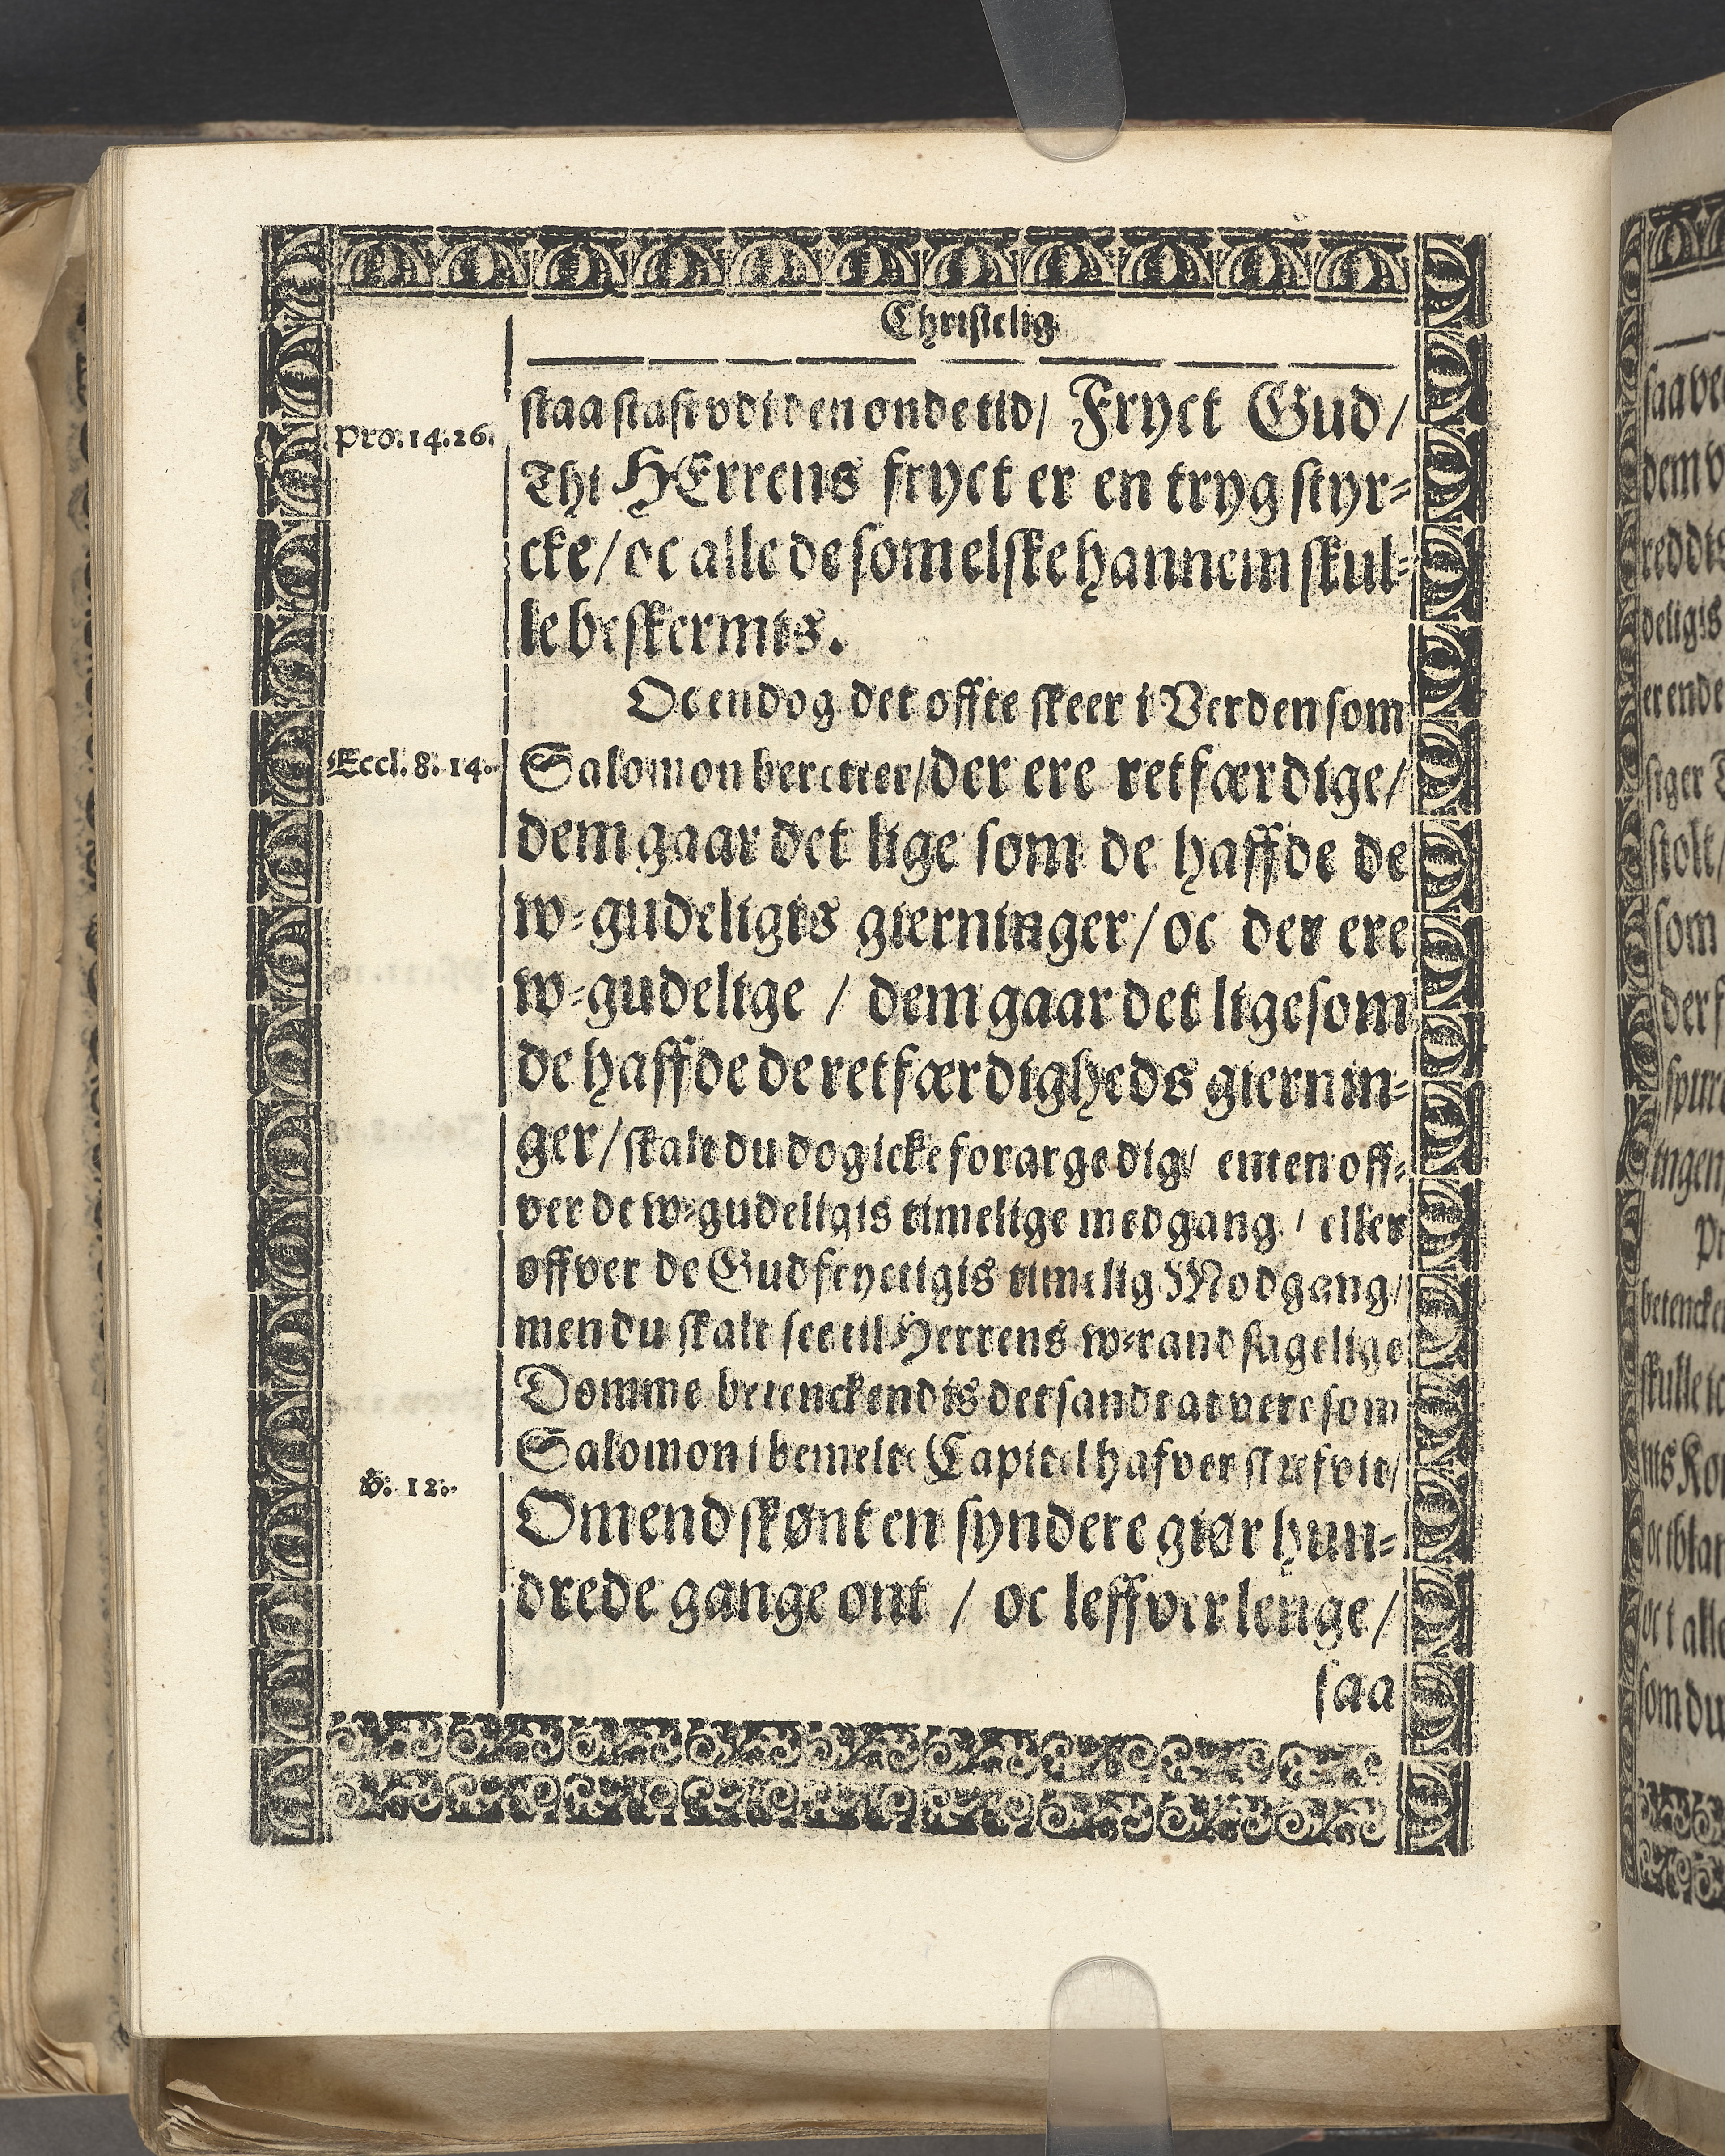 Christelig
staa stast vdi den onde tid/ Fryct Gud/
Pro. 14. 26.
Thi HErrens fryct er en tryg styr-
cke/ oc alle de som elske hannem skul-
le beskermis.
Oc endog det offte skeer i Verden som
Eccl. 8. 14.
Salomon beretter/ der ere retfærdige/
dem gaar det lige som de haffde de
w-gudeligis gierninger/ oc der ere
w-gudelige / dem gaar det lige som
de haffde de retfærdigheds giernin-
ger/ skalt du dog icke forarge dig/ enten off-
ver de w-gudeligis timelige medgang / eller
offver de Gudfryctigis timelig Modgang/
men du skalt see til Herrens w-randsagelige
Domme betenckendis det sandt at vere som
Salomon i bemelte Capitel hafver skrefvit/
v. 12.
Omend skønt en syndere giør hun-
drede gange ont / oc leffver lenge/
saa